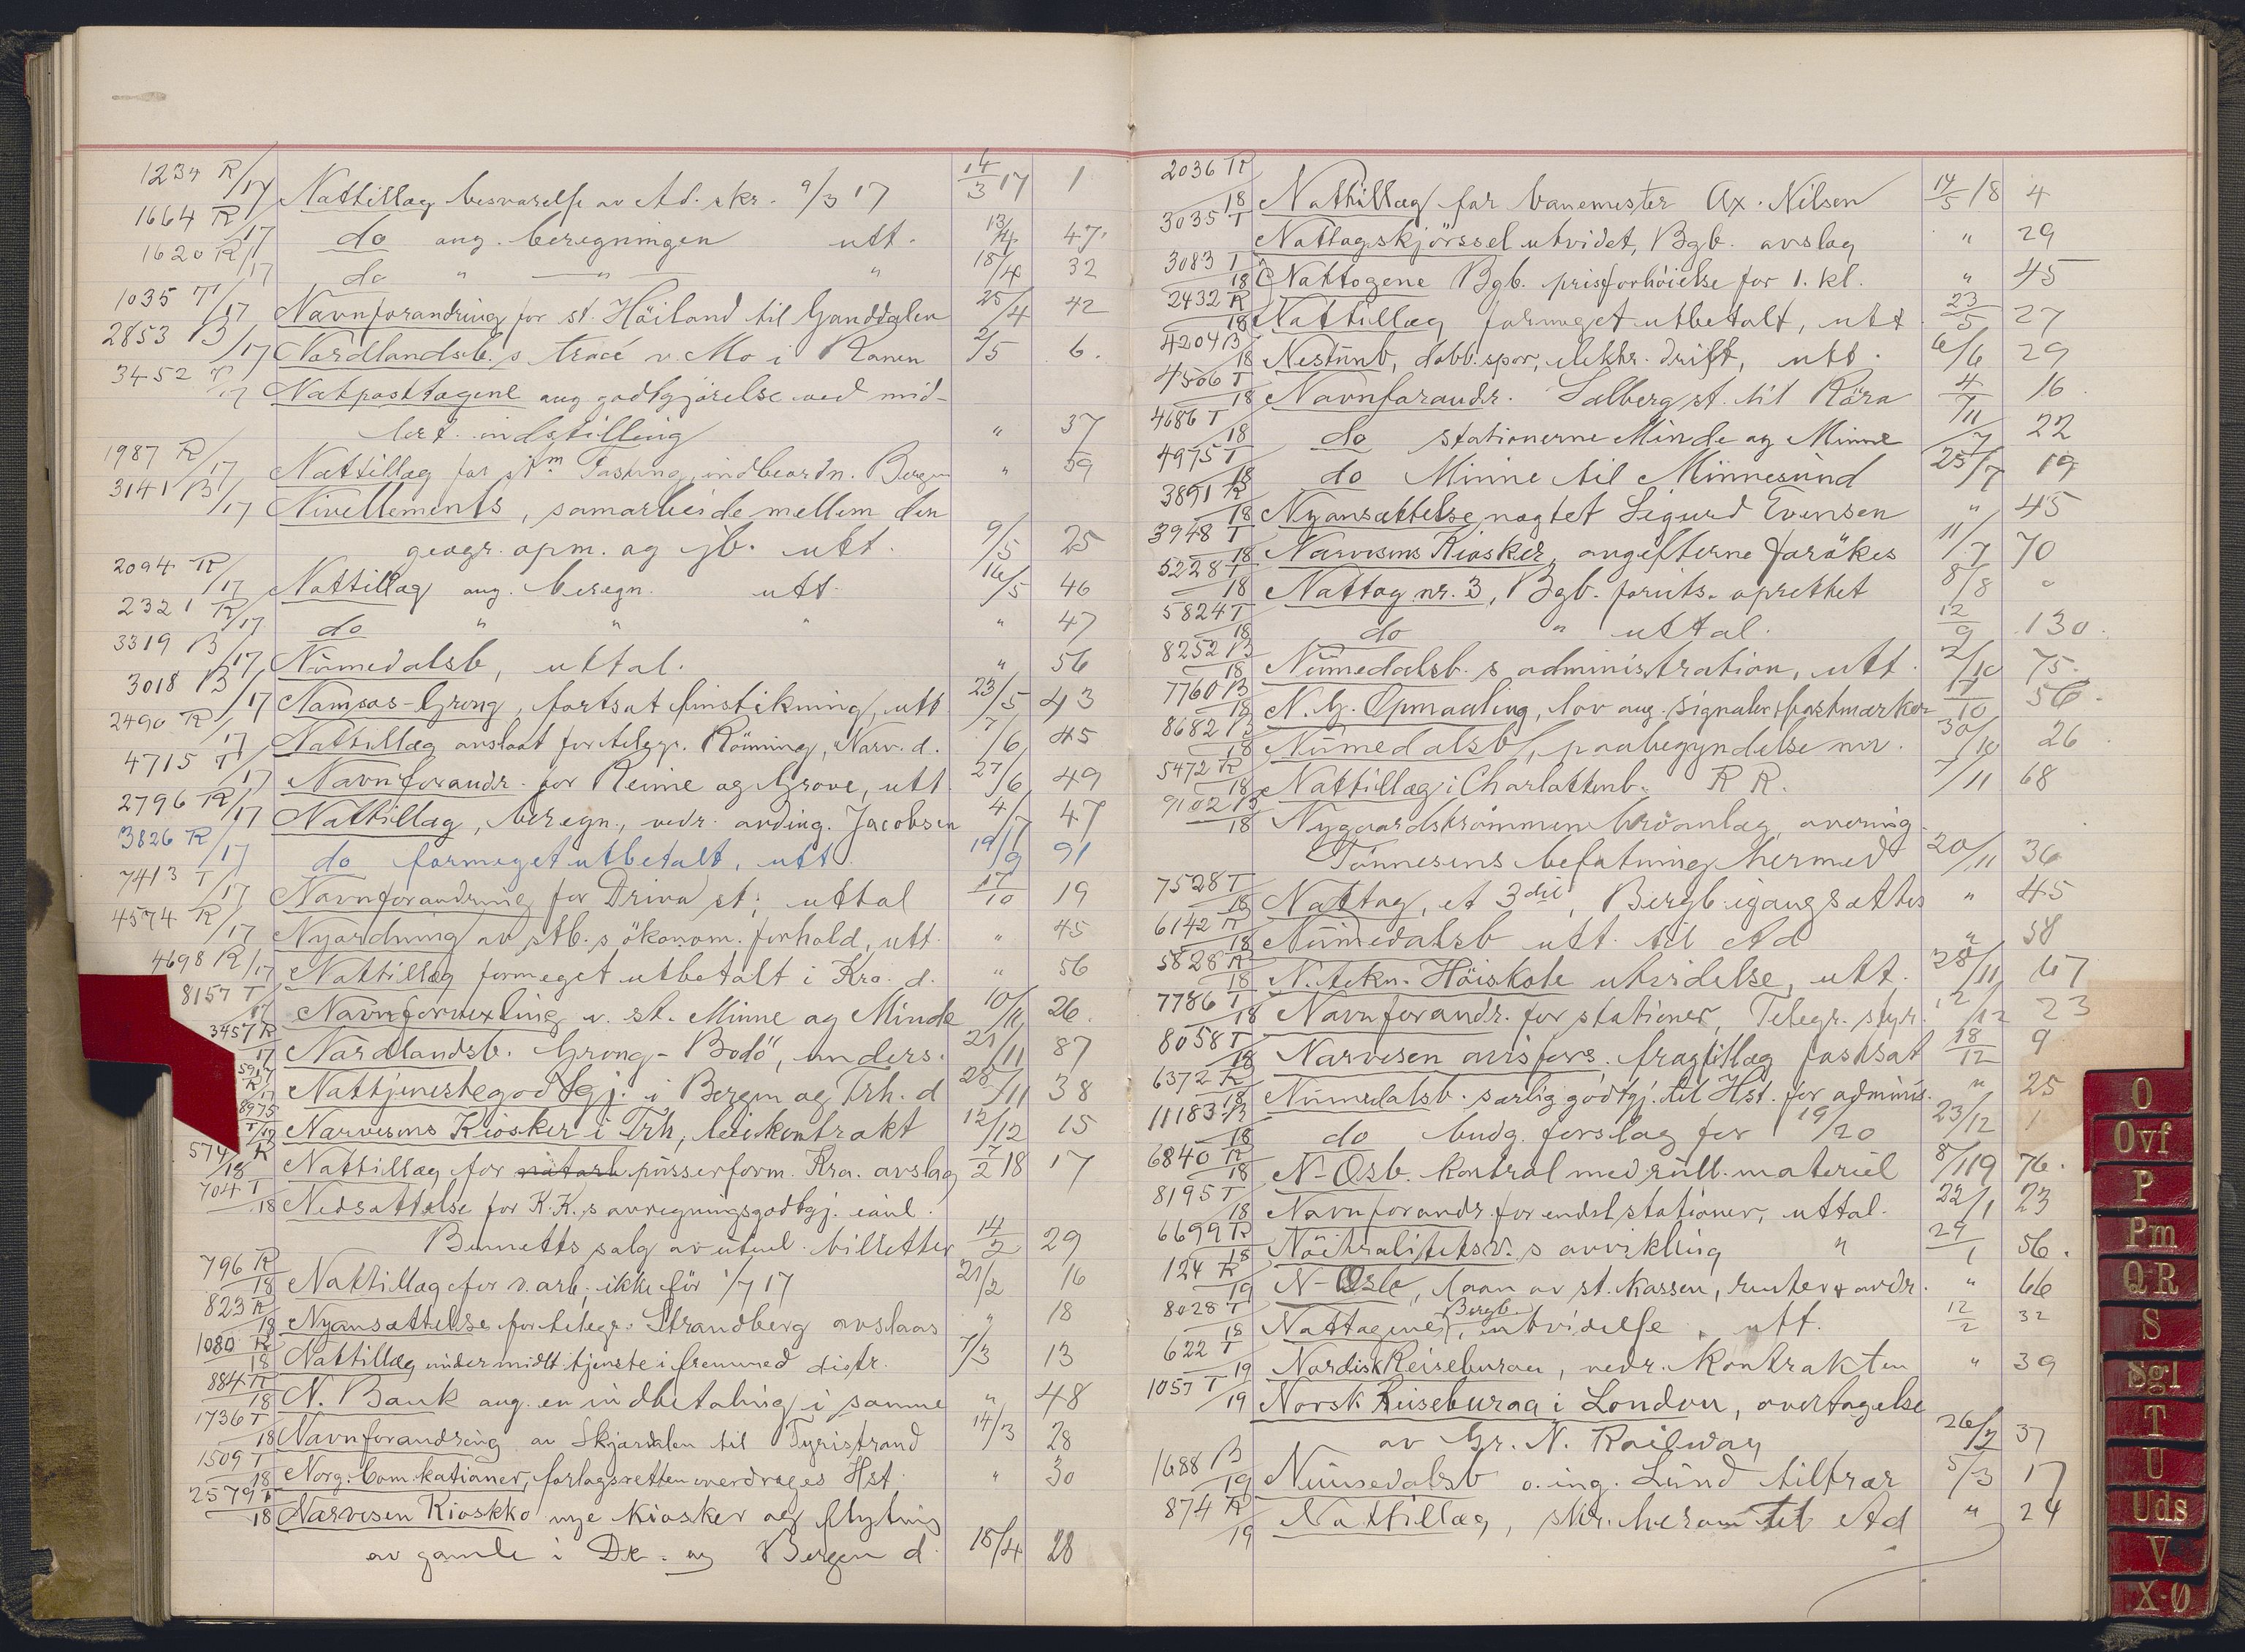 1234 R/17 Nattillæg besvarelse av Ad. skr. 9/3 17 14/3 17 1
1664 R/17 do ang. beregningen utt. 13/4 47
1620 R/17 do " — " — " 18/4 32
1035 T/17 Navnforandring for st. Höiland til Ganddalen 25/4 42
2853 B/17 Nordlandsb.s tracé v. Mo i Ranen 2/5 6.
3452 T/17 Natposttogene ang godtgjörelse ved mid-
lert. indstilling " 37
1987 R/17 Nattillæg for stm Fasting, indbeordn. Bergen " 59
3141 B/17 Nivellements, samarbeide mellem den
geogr. opm. og jb. utt. 9/5 25
2094 R/17 Nattillæg ang. beregn. utt. 16/5 46
2321 R/17 do " " " " 47
3319 B/17 Numedalsb, uttal. " 56
3018 B/17 Namsos-Grong, fortsat finstikning, utt 23/5 43
2490 R/17 Nattillæg avslaat for telegr. Rönning, Narv. d. 7/6 45
4715 T/17 Navnforandr. for Reime og Grove, utt. 27/6 49
2796 R/17 Nattillæg, beregn., vedr. avding. Jacobsen 4/7 47
3826 R/17 do formeget utbetalt, utt. 19/9 91
7413 T/17 Navnforandring for Driva st; uttal 17/10 19
4574 R/17 Nyordning av stb.s ökonom. forhold, utt. " 45
4698 R/17 Nattillæg formeget utbetalt i Kra. d. " 56
8157 T/17 Navnforvexling v. st. Minne og Minde 10/11 26.
3457 R/17 Nordlandsb. Grong-Bodö, unders. 21/11 87
R/17 Nattjenestegodtgj. i Bergen og Trh. d 28/11 38
8975 T/17 Narvesens Kiosker i Trh, leiekontrakt 12/12 15
574 R/18 Nattillæg for natarb pusserform. Kra. avslag 7/2 18 17
704 T/18 Nedsættelse for K.K.s avregningsgodtgj. eanl.
Bennetts salg av utenl. billetter 14/2 29
796 R/18 Nattillæg for v. arb, ikke för 1/7 17 21/2 16
823 R/18 Nyansættelse for telegr. Strandberg avslaas " 18
1080 R/18 Nattillæg under midlt. tjeneste i fremmed distr. 7/3 13
884 R/18 N. Bank ang. en indbetaling i samme " 48
1736 T/18 Navnforandring av Skjærdalen til Tyristrand 14/3 28
1509 T/18 Norg. Com.kationer, forlagsretten overdrages Hst. " 30
2579 T/18 Narvesen Kioskko nye kiosker og flytning
av gamle i Dr. og Bergen d. 18/4 28
2036 R/18 Nattillæg for banemester Ax. Nilsen 14/5 18 4
3035 T Nattogskjörssel utvidet, Bgb. avslag " 29
3083 T/18 Nattogene Bgb. prisforhöielse for 1. kl. " 45
2432 R/18 Nattillæg formeget utbetalt, utt. 23/5 27
4204 B/18 Nestunb, dobb.spor, elektr. drift, utt. 6/6 29
4506 T/18 Navnforandr. Salberg st. til Röra 4/7 16
4686 T/18 do stationerne Minde og Minne 11/7 22
4975 T/18 do Minne til Minnesund 25/7 19
3891 R/18 Nyansættelse nægtet Sigurd Evensen " 45
3948 T/18 Narvesens Kiosker, avgifterne forökes 11/7 70
5228 T/18 Nattog nr. 3, Bgb. foruts. oprettet 8/8 "
5824 T/18 do " uttal. 12/9 130.
8252 B/18 Numedalsb.s administration, utt. 2/10 75.
7760 B/18 N. G. Opmaaling, lov ang. signaler+fastmærker 17/10 56.
8682 B/18 Numedalsb, paabegyndelse nu. 30/10 26
5472 R/18 Nattillæg i Charlottenb. R R. 7/11 68
9102 B/18 Nygaardströmmen broanlæg, overing.
Tönnesens befatning hermed 20/11 36
7528 T/18 Nattog, et 3die, Bergb. igangsættes " 45
6142 R/18 Numedalsb utt. til Ad " 58
5828 R/18 N. tekn. Höiskole utvidelse, utt. 28/11 67
7786 T/18 Navnforandr. for stationer, Telegr. styr. 12/12 23
8058 T/18 Narvesen avisfors. fragttillæg fastsat 18/12 9
6372 R/18 Numedalsb. særlig godtgj. til Hst. for adminis. " 25
11183 B/18 do budg. forslag for 19/20 23/12 1
6840 R/18 N-Ösb. kontrol med rull. materiel 8/1 19 76.
8195 T/18 Navnforandr. for endel stationer, uttal. 22/1 23
6699 R/18 Nöitralitetsv.s avvikling " 29/1 56.
124 R/19 N-Ösb, laan av st.kassen, renter+avdr. " 66
8028 T/18 Nattogene, Bergb. utvidelse, utt. 12/2 32
622 T/19 Nordisk Reiseburau, vedr. kontrakten " 39
1057 T/19 Norsk Reiseburaa i London, overtagelse
av Gr. N. Railway 26/2 37
1688 B/19 Numedalsb o.ing. Lund tiltrær 5/3 17
874 R/19 Nattillæg, skr. herom til Ad " 24
O
Ovf
P
Pm
QR
S
Sgl
T
U
Uds
V
X-Ø